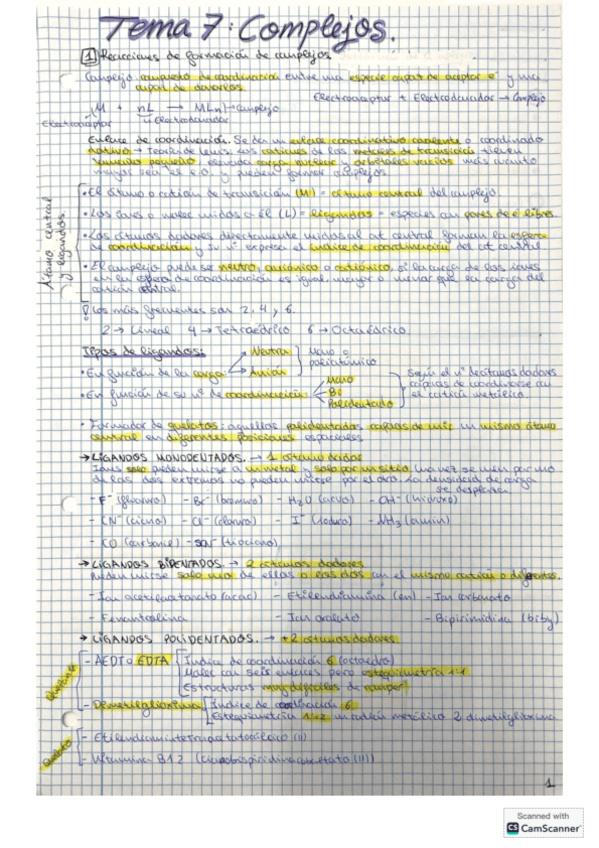 Tema 7: Complejos.
1 Reacciones de formación de complejos.
Complejo compuesto de coordinación entre una especie capaz de aceptar e⁻ y una
capaz de donarlos
Electroaceptor + Electrodonador → Complejo
M + nL → MLn → complejo
Electroaceptor Electrodonador
Enlace de coordinación. Se da un enlace coordinativo covalente o coordinado
dativo → Teoría de Lewis. Los cationes de los metales de transición tienen
tamaño pequeño, elevada carga nuclear y orbitales vacíos más cuanto
mayor sea el e.o. y pueden formar complejos
Átomo central y ligandos.
• El átomo o catión de transición (M) = átomo central del complejo
• Los iones o molec unidas a él (L) = ligandos = especies con pares de e⁻ libres.
• Los átomos dadores directamente unidos al at central forman la esfera
de coordinación y su nº expresa el índice de coordinación del at central
• El complejo puede ser neutro, aniónico o catiónico, si la carga de los iones
en la esfera de coordinación es igual, mayor o menor que la carga del
catión central.
! Los más frecuentes son 2, 4 y 6.
2 → Lineal 4 → Tetraédrico 6 → Octaédrico
Tipos de ligandos:
• En función de la carga Neutra Anión Mono o poliatómico
• En función de su nº de coordinación Mono Bi Polidentado
Según el nº de átomos dadores
capaces de coordinarse con
el catión metálico.
• Formador de quelatos: aquellos polidentados capaces de unir un mismo átomo
central en diferentes posiciones espaciales
→ LIGANDOS MONODENTADOS. → 1 átomo dador
Iones solo pueden unirse a un metal y solo por un sitio. Una vez se unen por uno
de los dos extremos no pueden unirse por el otro. La densidad de carga
se desplaza.
- F⁻ (fluoruro) - Br⁻ (bromuro) - H₂O (acuo) - OH⁻ (hidroxo)
- CN⁻ (ciano) - Cl⁻ (cloruro) - I⁻ (ioduro) - NH₃ (amin)
- CO (carbonil) - SCN⁻ (tiociano)
→ LIGANDOS BIDENTADOS. → 2 átomos dadores
Pueden unirse solo uno de ellos o los dos con el mismo catión o diferentes.
- Ion acetilacetonato (acac) - Etilendiamina (en) - Ion carbonato
- Fenantrolina - Ion oxalato - Bipirimidina (biby)
→ LIGANDOS POLIDENTADOS. → +2 átomos dadores.
Quelatos
- AEDT o EDTA Índice de coordinación 6 (octaedro)
Molec con seis enlaces pero estequiometría 1:1
Estructuras muy difíciles de romper
- Dimetilglioxima Índice de coordinación 6
Estequiometría 1:2 un catión metálico 2 dimetilglioxima
Quelato
- Etilendiamintetraacetatocálcico (II)
- Vitamina B12
1
Scanned with
CS CamScanner